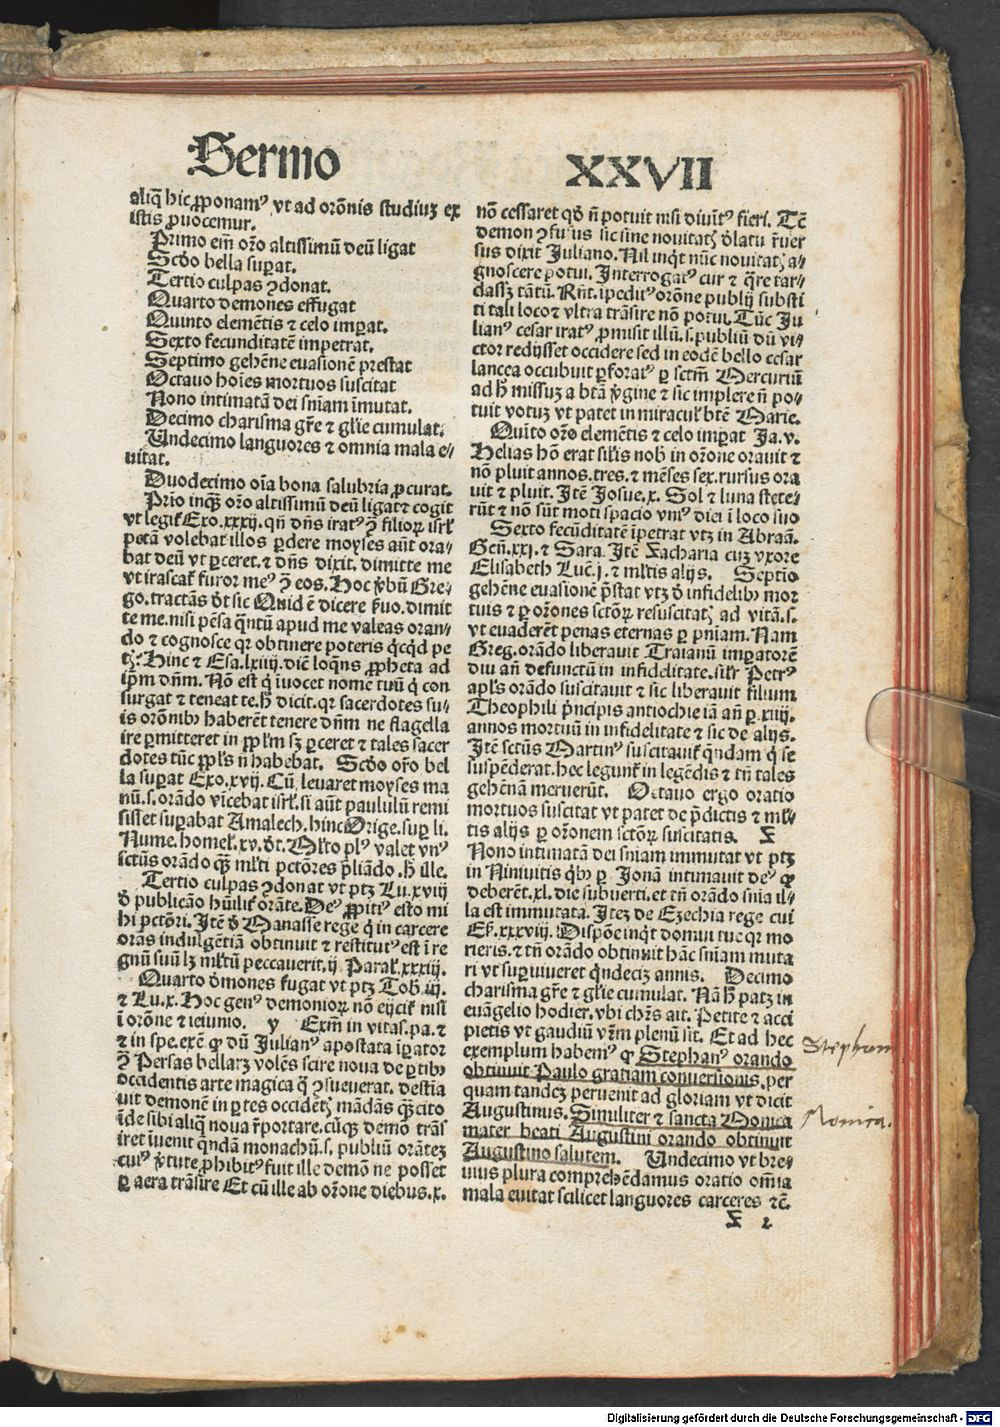 Sermo
XXVII
aliq̃ hic ꝓponamꝰ vt ad orōnis studiuꝫ ex
istis ꝓuocemur.
Primo em̄ or̄o altissimū deū ligat
Scd̄o bella suꝑat.
Tertio culpas ꝯdonat.
Quarto demones effugat
Quinto elemētis ⁊ celo imꝑat.
Sexto fecunditatē impetrat.
Septimo gehēne euasionē prestat
Octauo hoīes mortuos suscitat
Nono intimatā dei sn̄iam īmutat.
Decimo charisma gr̄e ⁊ gl̄ie cumulat.
Undecimo languores ⁊ omnia mala e/
uitat.
Duodecimo oīa bona salubria ꝓcurat.
Prīo inqꝫ or̄o altissimū deū ligat ⁊ cogit
vt legit᷒ Exo.xxxij. qn̄ dn̄s iratꝰ ꝯ̄ filioꝝ isrl̓
pctā volebat illos ꝑdere moyses aūt ora/
bat deū vt ꝑceret. ⁊ dn̄s dixit. dimitte me
vt irascat᷒ furor meꝰ ꝯ̄ eos. Hoc v̓bū Gre/
go. tractās d̓t sic Quid ē dicere ẜuo. dimit
te me. nisi pēsa q̄ntū apud me valeas oran/
do ⁊ cognosce qꝛ obtinere poteris q̇cq̇d pe
tꝭ. Hinc ⁊ Esa.lxiiij. diē loq̄ns ꝓpheta ad
ip̄m dn̄m. Nō est q̇ īuocet nomē tuū q̇ con
surgat ⁊ teneat te. h̓ dicit. qꝛ sacerdotes su/
is orōnibꝰ haberēt tenere dn̄m ne flagella
ire ꝑmitteret in ꝓpl̓m sꝫ ꝑceret ⁊ tales sacer
dotes tūc ꝓpl̓s n̄ habebat. Scd̓o or̄o bel
la suꝑat Exo.xvij. Cū leuaret moyses ma
nū. s. orādo vīcebat isrl̓. si aūt paululū remi
sisset suꝑabat Amalech. hinc Orige. suꝑ li.
Nume. homel̓.xv. d̓t. Ml̓to plꝰ valet vnꝰ
sctūs orādo qꝫ ml̓ti pctōres p̓liādo. h̓ ille.
Tertio culpas ꝯdonat vt ptꝫ Lu.xviij
d̓ publicāo hūilit᷒ orāte. Deꝰ ꝓpitiꝰ esto mi
hi pctōri. Itē d̓ Manasse rege q̇ in carcere
orās indulgētiā obtinuit ⁊ restitutꝰ est ī re
gnū suū lꝫ ml̓tū peccauerit. ij Paral̓.xxxiij.
Quarto d̓mones fugat vt ptꝫ Tob̓.iij.
⁊ Lu.x. Hoc genꝰ demonioꝝ nō eijcit᷒ nisi
ī orōne ⁊ ieiunio. y Exm̄ in vitas. pa. ⁊
⁊ in spe. exē. ꝙ dū Julianꝰ apostata īꝑator
ꝯ̄ Persas bellarꝫ volēs scire noua de ꝑtibꝰ
occidentis arte magica qͣ ꝯsueuerat. destia
uit demonē in ꝑtes occidētꝭ mādās qꝫcito
īde sibi aliq̄ noua r̓portare. cūqꝫ demō trās
iret īuenit q̄ndā monachū. s. publiū orātēꝫ
cuiꝰ v̓tute ꝓhibitꝰ fuit ille demō ne posset
ꝑ aera trāsire Et cū ille ab orōne diebus.x.
nō cessaret qd̓ n̄ potuit nisi diuītꝰ fieri. Tc̄
demon ꝯfusus sic sine nouitatꝭ d̓latu r̓uer
sus dixit Juliano. Nil inq̇t nūc nouitatꝭ a/
gnoscere potui. Interrogatꝰ cur ⁊ q̄re tar/
dassꝫ tātū. Rn̄t. ipeditꝰ orōne publij substi
ti tali loco ⁊ vltra trāsire nō potui. Tūc Ju
lianꝰ cesar iratꝰ ꝓmisit illū. s. publiū dū vi/
ctor redijsset occidere sed in eodē bello cesar
lancea occubuit ꝑforatꝰ ꝑ sctm̄ Mercuriū
ad h̓ missuꝫ a btā v̓gine ⁊ sic implere n̄ po/
tuit votuꝫ vt patet in miracul̓ btē Marie.
Quīto or̄o elemētis ⁊ celo imꝑat Ja.v.
Helias hō erat sil̓is nob̓ in orōne orauit ⁊
nō pluit annos. tres. ⁊ mēses sex. rursus ora
uit ⁊ pluit. Itē Josue.x. Sol ⁊ luna stete/
rūt ⁊ nō sūt moti spacio vniꝰ diei ī loco suo
Sexto fecūditatē īpetrat vtꝫ in Abraā.
Gen̄.xxj. ⁊ Sara. Itē Zacharia cuꝫ vxore
Elisabeth Luc̄.j. ⁊ ml̓tis alijs. Septīo
gehēne euasionē p̄stat vtꝫ d̓ infidelibꝰ mor
tuis ⁊ ꝑ orōnes sctōꝝ resuscitatꝭ ad vitā. s.
vt euaderēt penas eternas ꝑ pn̄iam. Nam
Greg. orādo liberauit Traianū imꝑatorē
diu an̄ defunctū in infidelitate. sil̓r Petrꝰ
apl̓s orādo suscitauit ⁊ sic liberauit filium
Theophili p̓ncipis antiochie iā an̄ ꝑ.xiiij.
annos mortuū in infidelitate ⁊ sic de alijs.
Itē sctūs Martinꝰ suscitauit q̄ndam q̇ se
suspēderat. hec legunt᷒ in legēdis ⁊ tn̄ tales
gehēnā meruerūt. Octauo ergo oratio
mortuos suscitat vt patet de p̄dictis ⁊ ml̓/
tis alijs ꝑ orōnem sctōꝝ suscitatis. Z
Nono intimatā dei sn̄iam immutat vt ptꝫ
in Niniuitis qͥbꝰ ꝑ Jonā intimauit deꝰ ꝙ
deberēt.xl. die subuerti. et tn̄ orādo sn̄ia il/
la est immutata. Iteꝫ de Ezechia rege cui
Es̓.xxxviij. Dispōe inq̇t domui tue qꝛ mo
rieris. ⁊ tn̄ orādo obtinuit hāc sn̄iam muta
ri vt suꝑuiueret q̇ndeciꝫ annis. Decimo
charisma gr̄e ⁊ gl̄ie cumulat. Nā h̓ patꝫ in
euāgelio hodier. vbi chr̄s ait. Petite ⁊ acci
pietis vt gaudiū vr̄m plenū sit. Et ad hec
exemplum habemꝰ ꝙ Stephanꝰ orando
obtinuit Paulo gratiam conuersionis. per
quam tandeꝫ peruenit ad gloriam vt dicit
Augustinus. Similiter ⁊ sancta Monica
mater beati Augustini orando obtinuit
Augustino salutem. Undecimo vt bre/
uius plura comprehēdamus oratio om̄ia
mala euitat scilicet languores carceres ⁊c̄.
Z 2
Stephanus
Monica.
Digitalisierung gefördert durch die Deutsche Forschungsgemeinschaft - DFG